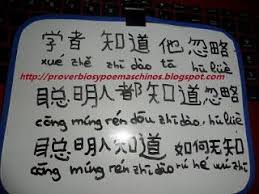 学者 知道 他 忽略
xué zhě zhī dào tā hū lüè
http://proverbiosypoemaschinos.blogspot.com
聪明人都知道忽略
cōng míng rén dōu zhī dào, hū lüè
聪明人知道 如何无知
cōng míng rén zhī dào rú hé wú zhī